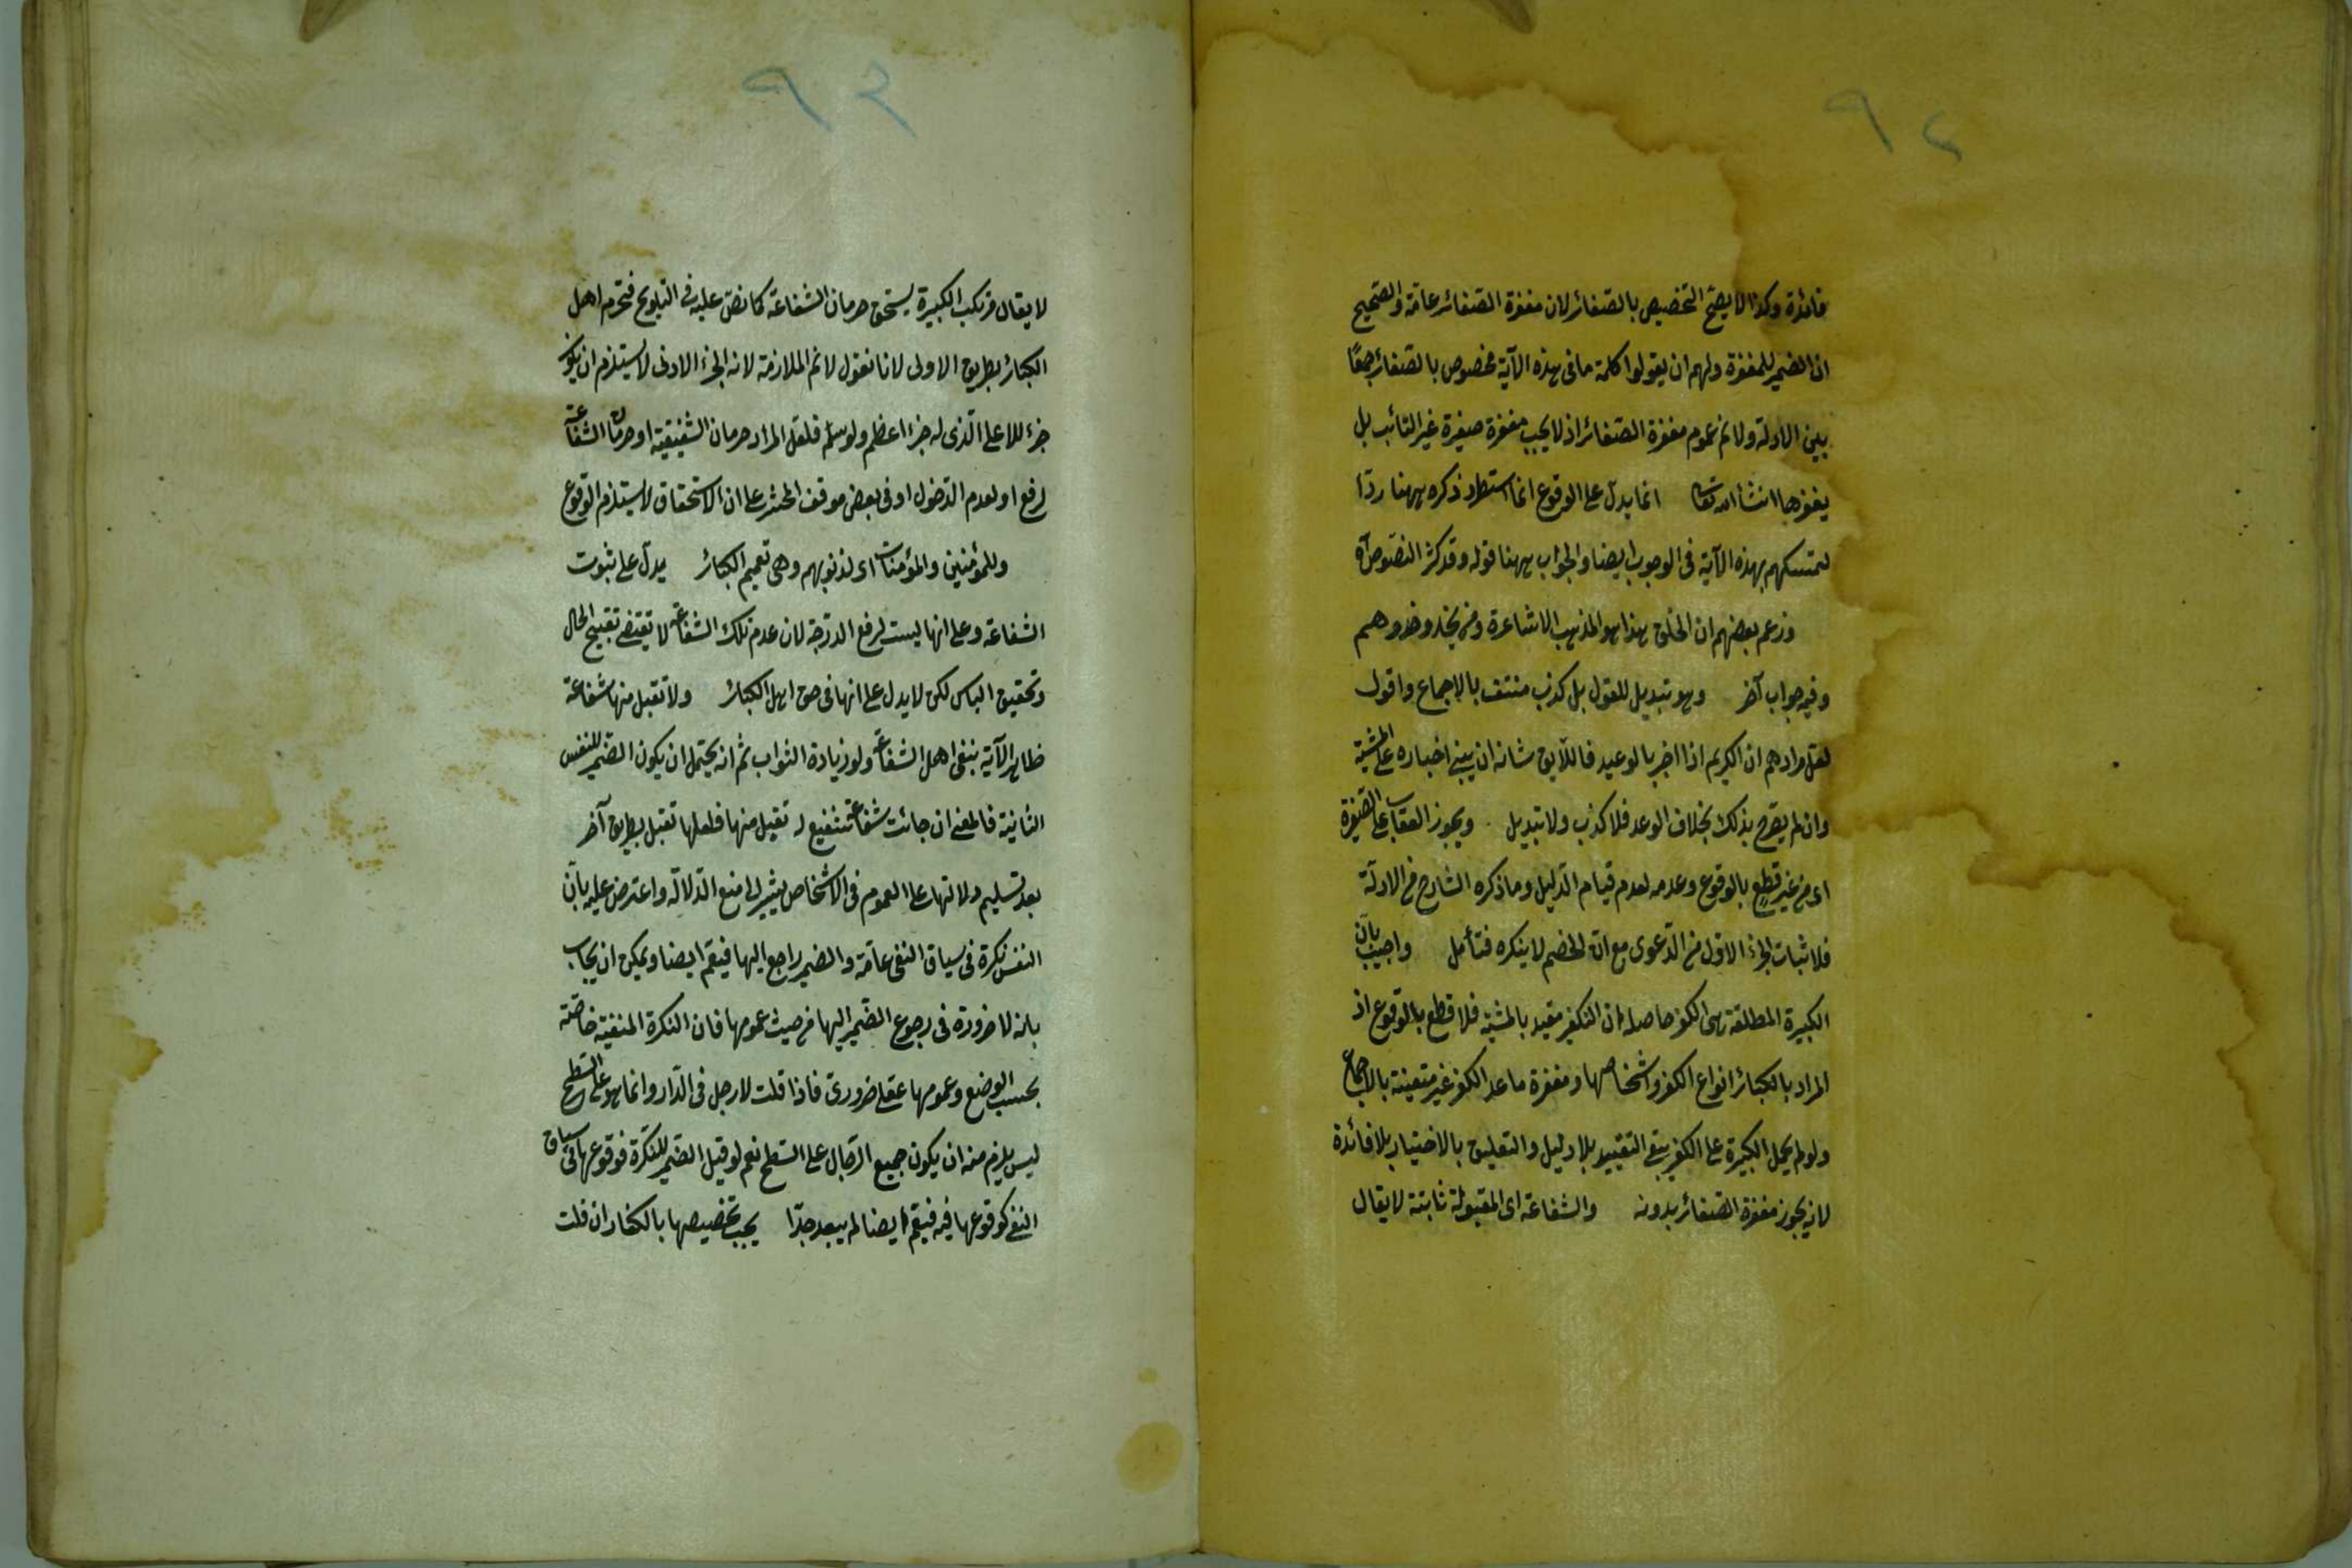 ٩٢
فائدة وكذا لا يصح التخصيص بالصغائر لان مغفرة الصغائر عامة والصحيح
ان الضمير للمغفرة ولهم ان يقولوا كلمة ما في هذه الآية مخصوص بالصغائر جمعًا
بين الادلة ولا نم عموم مغفرة الصغائر اذ لا يجب مغفرة صغيرة غير التائب بل
يغفرها انشأ الله تعالى انما يدل على الوقوع انما استطرد ذكره ههنا ردّا
لتمسكهم بهذه الآية في الوجوب ايضا والجواب ههنا قوله وقد كثر النصوص آه
وزعم بعضهم ان الخلق هذا هو المذهب الاشاعرة ومن يحذو حذوهم
وفيه جواب آخر وهو تبديل للقول بل كذب منتف بالاجماع واقول
لعل مرادهم ان الكريم اذا اخبر بالوعيد فاللايق شانه ان يبنى اخباره على المشية
وان لم يصرح بذلك بخلاف الوعد فلا كذب ولا تبديل ويجوز العقاب على الصغيرة
اى من غير قطع بالوقوع وعدمه لعدم قيام الدليل وما ذكره الشارح من الادلة
فلاثبات الجزء الاول من الدعوى مع ان الخصم لا ينكره فتأمل واجيب بان
الكبيرة المطلقة هى الكفر حاصله ان التكفير مقيد بالمشية فلا قطع بالوقوع اذ
المراد بالكبائر انواع الكفر واشخاصها ومغفرة ما عدا الكفر غير متعينة بالاجماع
ولو لم يحمل الكبيرة على الكفر بقى التقييد بلا دليل والتعليق بالاختيار بلا فائدة
لانه يجوز مغفرة الصغائر بدونه والشفاعة اى المقبولة ثابتة لا يقال
٩٣
لا يقال مرتكب الكبيرة يستحق حرمان الشفاعة كما نص عليه في التلويح فتحرم اهل
الكبائر بطريق الاولى لانا نقول لا نم الملازمة لانه الجزء الادنى لا يستلزم ان يكون
جزء للاعلى الذى له جزء اعظم ولو سلم فلعل المراد حرمان الشفيعية او حرمان الشفاعة
لرفع او لعدم الدخول او في بعض موقف الحشر على ان الاستحقاق لا يستلزم الوقوع
وللمؤمنين والمؤمنات اى لذنوبهم وهى تعميم الكبائر يدل على ثبوت
الشفاعة وعلى انها ليست لرفع الدرجة لان عدم تلك الشفاعة لا تقتضى تقبيح الحال
وتحقيق الباس لكن لا يدل على انها في حق اهل الكبائر ولا تقبل منها شفاعة
ظاهر الآية بنفى اهل الشفاعة ولو زيادة الثواب ثم انه يحتمل ان يكون الضمير للنفس
الثانية فالمعنى ان جائت شفاعة شفيع لم تقبل منها فلعلها تقبل بطريق آخر
بعد تسليم دلالتها على العموم في الاشخاص يشير الى منع الدلالة واعترض عليه بان
النفس نكرة في سياق النفى عامة والضمير راجع اليها فيعم ايضا ويمكن ان يجاب
بانه لا ضرورة في رجوع الضمير اليها من حيث عمومها فان النكرة المنفية خاصة
بحسب الوضع وعمومها عقلى ضرورى فاذا قلت لا رجل في الدار وانما هو على السطح
ليس يلزم منه ان يكون جميع الرجال على السطح نعم لو قيل الضمير للنكرة فوقوعها في سياق
النفى كوقوعها فيه فيعم ايضا لم يبعد جدّا يجب تخصيصها بالكفار ان قلت